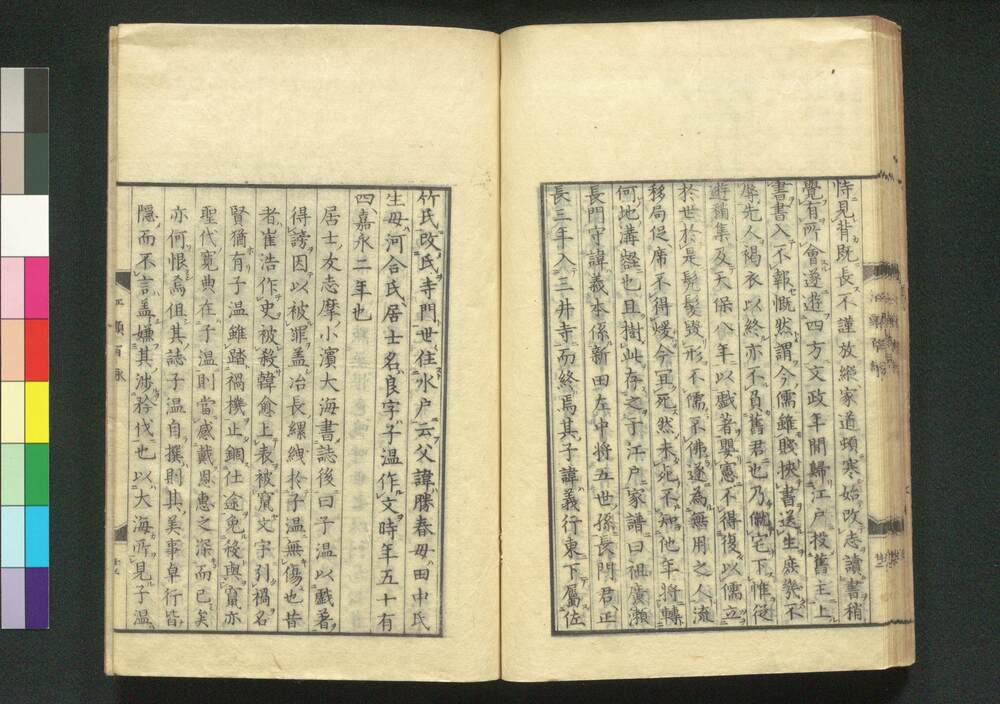 恃見背既長不謹放縱家道頓寒始改志讀書稍
覺有所會遂遊四方文政年間歸江戸投舊主上
書書入不報慨然謂今儒雖賤挾書送生庶幾不
辱先人褐衣以終亦不負舊君也乃僦宅下惟從
遊稍集及天保八年以戯著嬰憲不得復以儒立
於世於是髠髮毀形不儒不佛遂為無用之人流
移局促席不得煖今宜死然未死不知他年將轉
何地溝壑也且樹此存之于江戸家譜曰祖廣瀬
長門守諱義本係新田左中將五世孫長門君正
長三年入三井寺而終焉其子諱義行東下屬佐
竹氏改氏寺門世住水戸云父諱勝春母田中氏
生母河合氏居士名良字子温作文時年五十有
四嘉永二年也
居士友志摩小濱大海書誌後曰子温以戯著
得謗因以被罪盖冶長縲絏於子温無傷也昔
者崔浩作史被殺韓愈上表被竄文字引禍名
賢猶有子温雖踏禍機止錮仕途免移與竄亦
聖代寛典在子温則當感戴恩惠之深而已矣
亦何恨焉但其誌子温自撰則其美事卓行皆
隱而不言盖嫌其渉矜伐也以大海所見子温